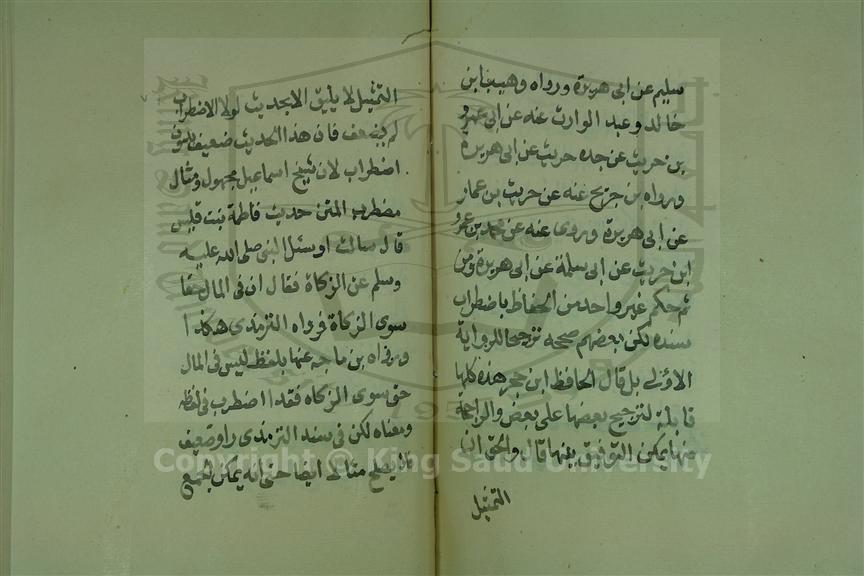 سليم عن ابى هريرة ورواه وهيب ابن
خالد وعبد الوارث عنه عن ابى عمرو
بن حريث عن جده حريث عن ابى هريرة
ورواه بن جريج عنه عن حريث بن عمار
عن ابى هريرة وروى عنه عن محمد بن عمرو
ابن حريث عن ابى سلمة عن ابى هريرة ومن
ثم حكم غير واحد من الحفاظ باضطراب
سنده لكن بعضهم صححه ترجيحا للرواية
الاولى بل قال الحافظ ابن حجر هذه كلها
قابلة لترجيح بعضها على بعض والراجحة
منها يمكن التوفيق بينها قال والحق ان
التمثيل
التمثيل لا يليق الا بحديث لولا الاضطراب
لم يضعف فان هذا الحديث ضعيف بدون
اضطراب لان شيخ اسماعيل مجهول ومثال
مضطرب المتن حديث فاطمة بنت قليس
قال سالت او سئل النبى صلى الله عليه
وسلم عن الزكاة فقال ان فى المال حقا
سوى الزكاة فرواه الترمذى هكذا
ورواه بن ماجه عنها بلفظ ليس فى المال
حق سوى الزكاه فقد اضطرب فى لفظه
ومعناه لكن فى سند الترمذى راو ضعيف
فلا يصلح مثالا ايضا حتى انه يمكن الجمع
Copyright © King Saud University
1957